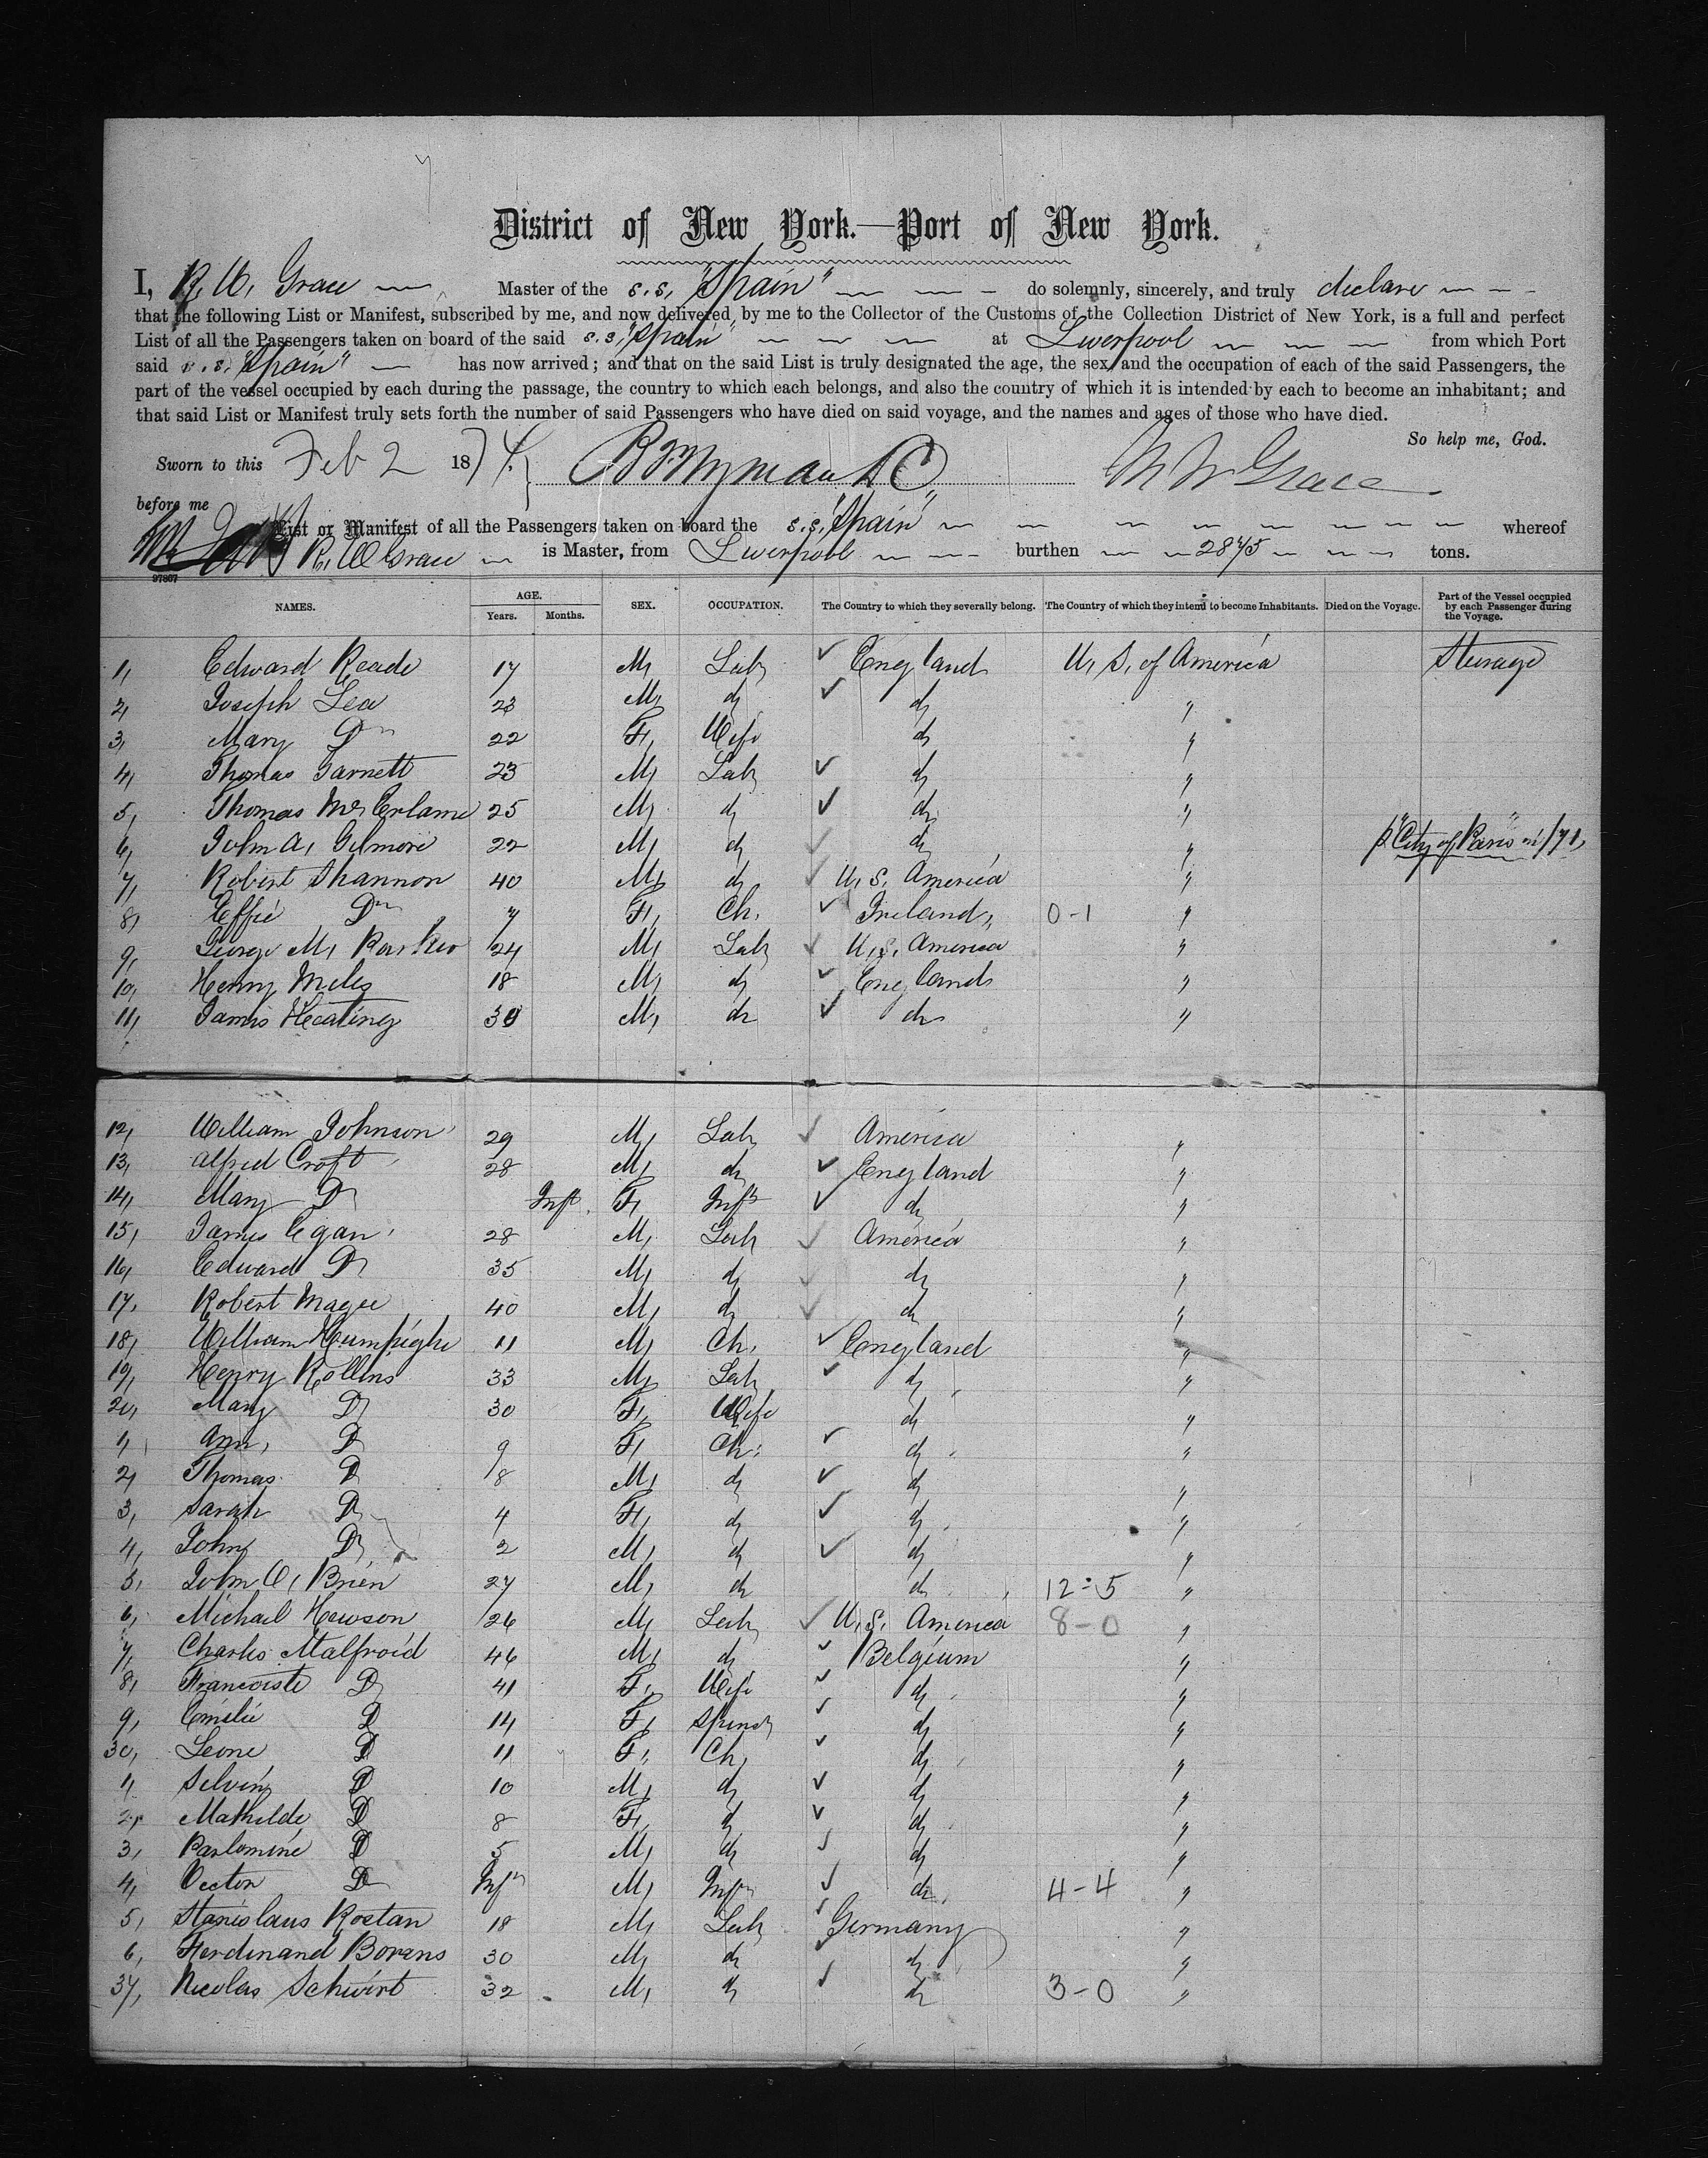 District of New York.—Port of New York.
I, R. W. Grace Master of the s.s. "Spain" do solemnly, sincerely, and truly declare
that the following List or Manifest, subscribed by me, and now delivered by me to the Collector of the Customs of the Collection District of New York, is a full and perfect
List of all the Passengers taken on board of the said s.s. "Spain" at Liverpool from which Port
said s.s. "Spain" has now arrived; and that on the said List is truly designated the age, the sex, and the occupation of each of the said Passengers, the
part of the vessel occupied by each during the passage, the country to which each belongs, and also the country of which it is intended by each to become an inhabitant; and
that said List or Manifest truly sets forth the number of said Passengers who have died on said voyage, and the names and ages of those who have died.
So help me, God.
Sworn to this Feb 2 1874. R W Grace
before me
List or Manifest of all the Passengers taken on board the s.s. "Spain" whereof
R. W Grace is Master, from Liverpool burthen 2875 tons.
97807
NAMES. AGE. Years. Months. SEX. OCCUPATION. The Country to which they severally belong. The Country of which they intend to become Inhabitants. Died on the Voyage. Part of the Vessel occupied by each Passenger during the Voyage.
1, Edward Reade 17 M, Labr England U, S, of America Steerage
2, Joseph Lea 23 M, do do "
3, Mary Do 22 F, Wife do "
4, Thomas Garnett 23 M, Labr do "
5, Thomas McErlame 25 M, do do "
6, John A, Gilmore 22 M, do do " p "City of Paris"
7, Robert Shannon 40 M, do U, S, America "
8, Effie Do 7 F, Ch, Ireland, 0-1 "
9, George M, Parker 24 M, Labr U,S, America "
10, Henry Miles 18 M, do England "
11, James Keating 30 M, do do "
12, William Johnson 29 M, Labr America "
13, Alfred Croft 28 M, do England "
14, Mary Do Inft F, Inft do "
15, James Egan 28 M, Labr America "
16, Edward Do 35 M, do do "
17, Robert Magee 40 M, do do "
18, William 11 M, Ch, England "
19, Henry Rollins 33 M, Labr do "
20, Mary Do 30 F, Wife do "
1, Ann, Do 9 F, Ch, do "
2, Thomas Do 8 M, do do "
3, Sarah Do 4 F, do do "
4, John Do 2 M, do do "
5, John O, Brien 27 M, do do 12-5 "
6, Michael Hewson 26 M, Labr U,S, America 8-0 "
7, Charles Malfroid 46 M, do Belgium "
8, Francoise Do 41 F, Wife do "
9, Emilie Do 14 F, Spinsr do "
30, Leone Do 11 F, Ch, do "
1, Selvin Do 10 M, do do "
2, Mathilde, Do 8 F, do do "
3, Parlomine Do 5 M, do do "
4, Vector Do Inft M, Inft do 4-4 "
5, Stanislaus Rostan 18 M, Labr Germany "
6, Ferdinand Borens 30 M, do do "
37, Nicolas Schwirt 32 M, do do 3-0 "